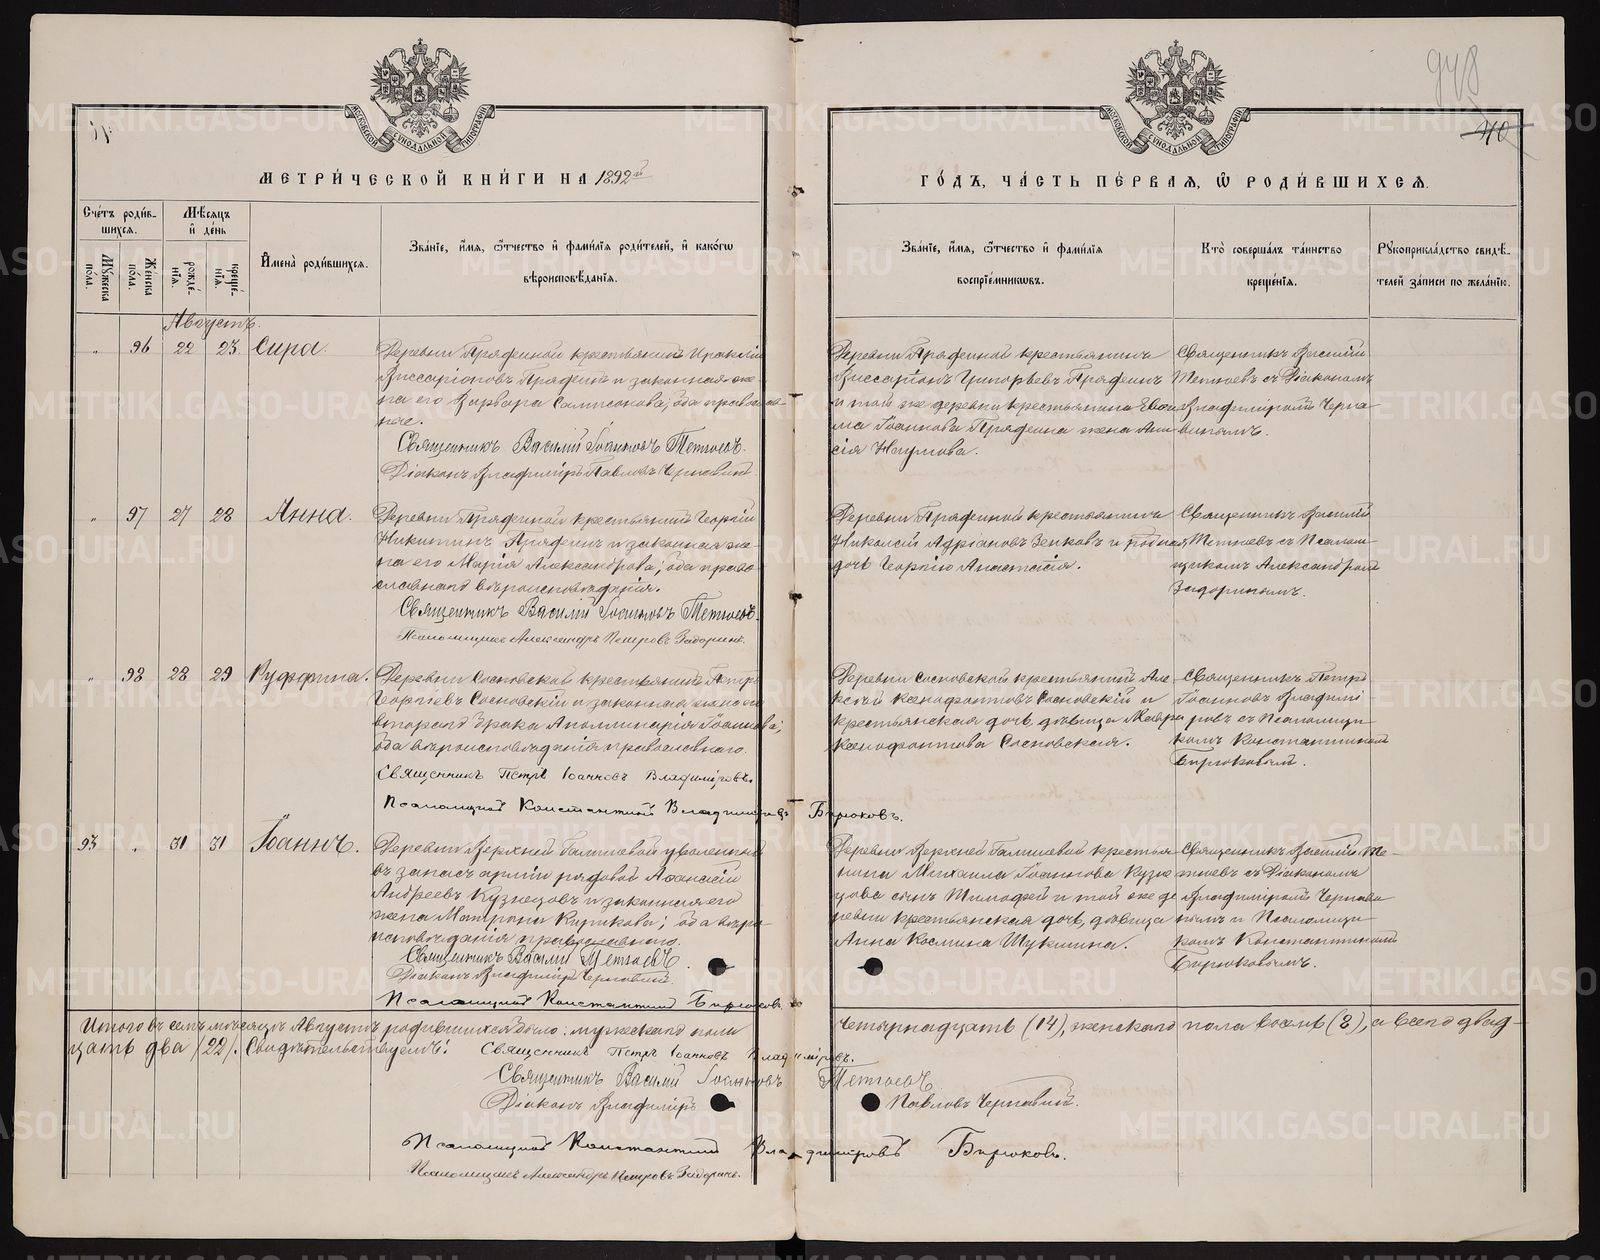 948
40
МОСКОВСКОЙ СѴНОДАЛЬНОЙ ТИПОГРАФІИ
МОСКОВСКОЙ СѴНОДАЛЬНОЙ ТИПОГРАФІИ
МЕТРИ́ЧЕСКОЙ КНИ́ГИ НА 1892й
ГО́ДЪ, ЧА́СТЬ ПЕ́РВАЯ, Ѡ РОДИ́ВШИХСЯ.
Сче́тъ роди́в-
шихся.
Мꙋжеска по́ла.
Же́нска по́ла.
Мѣ́сяцъ
и҆ де́нь
рожде́-
нїя.
креще́-
нїя.
И҆мена̀ роди́вшихся.
Зва́нїе, и҆́мя, ѻ҆́тчество и҆ фами́лїя роди́телей, и҆ како́гѡ
вѣроисповѣ́данїя.
Зва́нїе, и҆́мя, ѻ҆́тчество и҆ фами́лїя
воспрїе́мникѡвъ.
Кто̀ соверша́лъ та́инство
креще́нїя.
Рꙋкоприкла́дство свидѣ́-
телей за́писи по жела́нїю.
Августъ.
" 96 22 23 Сира.
Деревни Пряфеиной крестьянинъ Ираклій
Виссаріоновъ Пряфеинъ и законная же-
на его Варвара Самсонова; оба православ-
ные.
Священникъ Василій Іоанновъ Тетюевъ.
Діаконъ Владиміръ Павловъ Чернавинъ
Деревни Пряфеиной крестьянинъ
Виссаріонъ Григорьевъ Пряфеинъ
и той же деревни крестьянина
Іоаннова Пряфеина жена Ани-
сія Наумова.
Священникъ Василій
Тетюевъ съ Діакономъ
Владиміромъ Черна-
винымъ.
" 97 27 28 Анна.
Деревни Пряфеиной крестьянинъ Георгій
Никитинъ Пряфеинъ и законная же-
на его Марія Александрова; оба право-
славнаго вѣроисповѣданія.
Священникъ Василій Іоанновъ Тетюевъ.
Псаломщикъ Александръ Петровъ Задоринъ.
Деревни Пряфеиной крестьянинъ
Николай Адріановъ Зенковъ и родная
дочь Георгію Анастасія.
Священникъ Василій
Тетюевъ съ Псалом-
щикомъ Александромъ
Задоринымъ.
" 98 28 29 Руффина.
Деревни Сосновской крестьянинъ Петръ
Георгіевъ Сосновскій и законная жена его
втораго брака Аполлинарія Іоаннова;
оба вѣроисповѣданія православнаго.
Священникъ Петръ Іоанновъ Владиміровъ.
Псаломщикъ Константинъ Владиміровъ Бирюковъ.
Деревни Сосновской крестьянинъ Але-
ксѣй Ксенофонтовъ Сосновскій и
крестьянская дочь, дѣвица Мавра
Ксенофонтова Сосновская.
Священникъ Петръ
Іоанновъ Владимі-
ровъ съ Псаломщи-
комъ Константиномъ
Бирюковымъ.
93 " 31 31 Іоаннъ.
Деревни Верхней уволенный
въ запасъ арміи рядовой Аѳанасій
Андреевъ Кузнецовъ и законная его
жена Матрона Карпкова; оба вѣро-
исповѣданія православнаго.
Священникъ Василій Тетюевъ.
Діаконъ Владиміръ Чернавинъ
Псаломщикъ Константинъ Бирюковъ
Деревни Верхней крестья-
нина Михаила Іоаннова Кузне-
цова сынъ Тимофей и той же де-
ревни крестьянская дочь, дѣвица
Анна Космина Шукшина.
Священникъ Василій Те-
тюевъ съ Діакономъ
Владиміромъ Чернави-
нымъ и Псаломщи-
комъ Константиномъ
Бирюковымъ.
Итого въ семъ мѣсяцѣ Августѣ родившихся было: мужескаго пола четырнадцать (14), женскаго пола восемь (8), а всего двад-
цать два (22). Свидѣтельствуемъ: Священникъ Петръ Іоанновъ Владиміровъ.
Священникъ Василій Іоанновъ Тетюевъ
Діаконъ Владиміръ Павловъ Чернавинъ.
Псаломщикъ Константинъ Владиміровъ Бирюковъ.
Псаломщикъ Александръ Петровъ Задоринъ.
METRIKI.GASO-URAL.RU